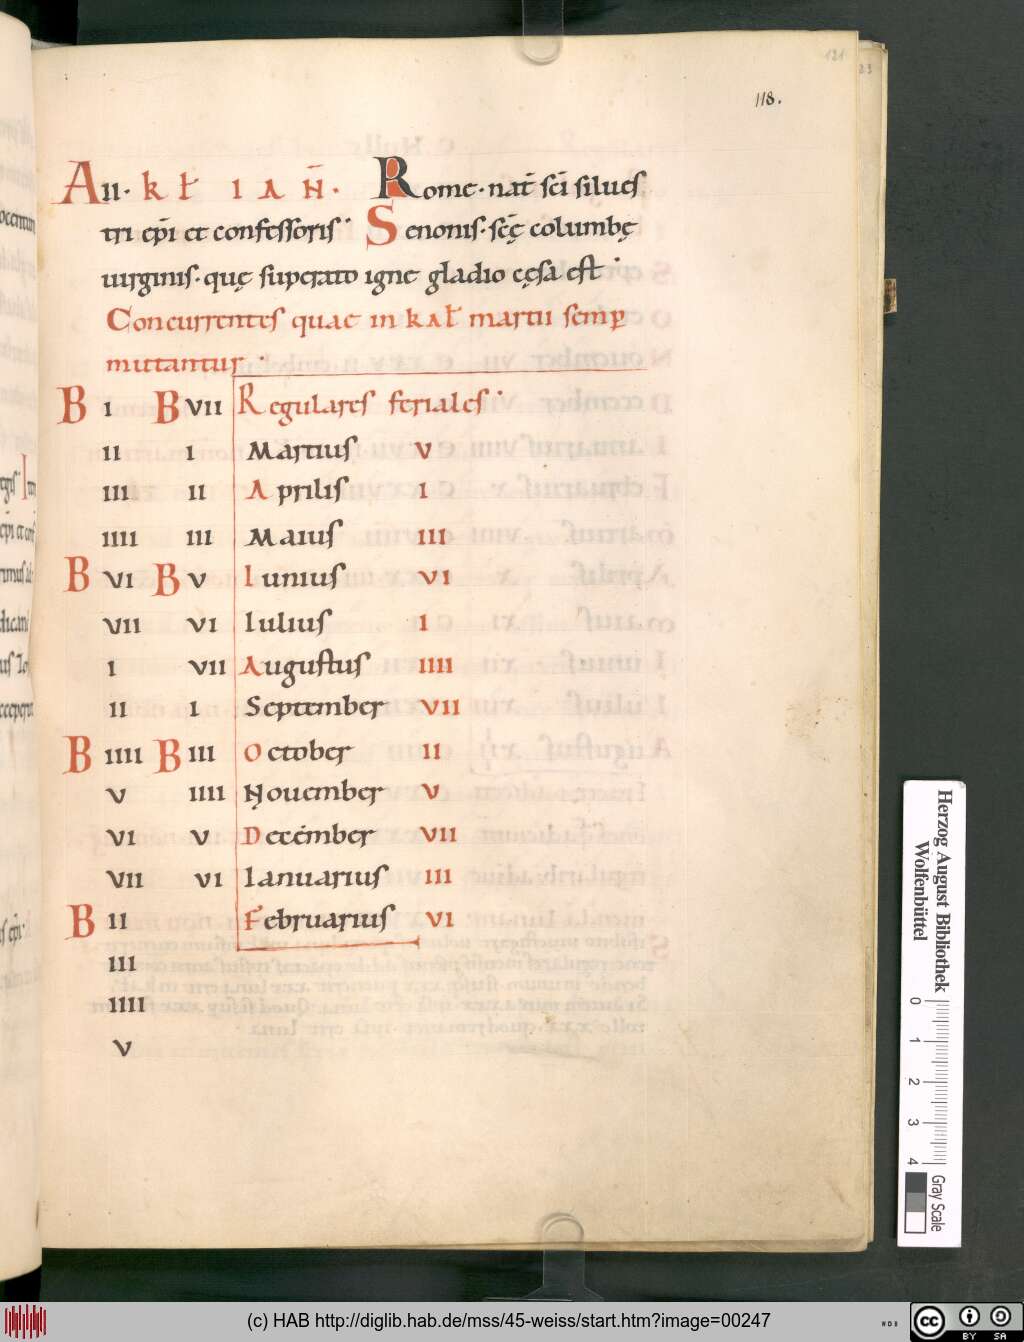 118.
A II · kł IAN̄ · Rome · nat̄ sc̄i silues
tri ep̄i et confessoris · Senonis · sc̄ę columbę
uirginis · quę superato igne gladio cęsa est ·
Concurrentes quae in kał martii semp
mutantur ·
B I B VII Regulares feriales ·
II I Martius V
III II Aprilis I
IIII III Maius III
B VI B V Iunius VI
VII VI Iulius I
I VII Augustus IIII
II I September VII
B IIII B III October II
V IIII Nouember V
VI V December VII
VII VI Ianuarius III
B II Februarius VI
III
IIII
V
Herzog August Bibliothek
Wolfenbüttel
0 1 2 3 4
Gray Scale
(c) HAB http://diglib.hab.de/mss/45-weiss/start.htm?image=00247
cc BY SA